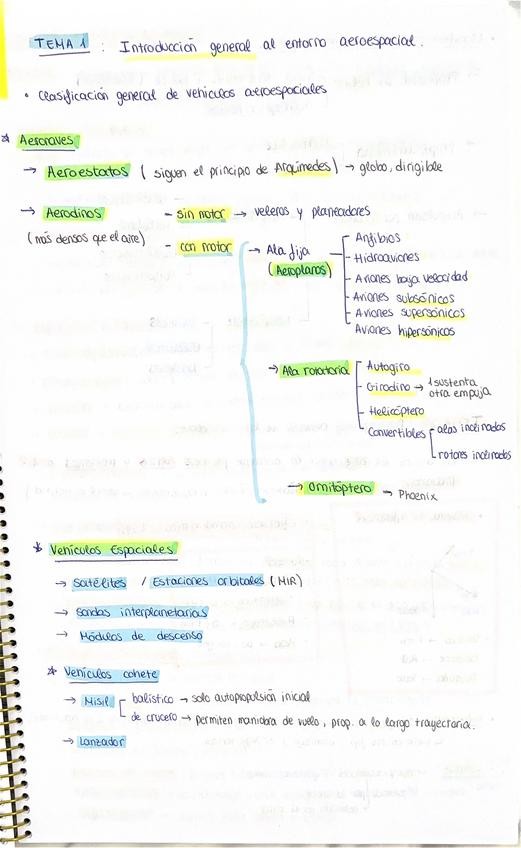 TEMA 1 : Introducción general al entorno aeroespacial.
• Clasificación general de vehículos aeroespaciales
* Aeronaves
→ Aeroestatos ( siguen el principio de Arquímedes) → globo, dirigible
→ Aerodinos
(más densos que el aire)
- sin motor → veleros y planeadores
- con motor
→ Ala fija
(Aeroplanos)
- Anfibios
- Hidroaviones
- Aviones baja velocidad
- Aviones subsónicos
- Aviones supersónicos
Aviones hipersónicos
→ Ala rotatoria
Autogiro
- Girodino → 1 sustenta
otra empuja
- Helicóptero
Convertibles
alas inclinados
rotores inclinados
→ Ornitóptero → Phoenix
* Vehículos Espaciales
→ Satélites / Estaciones orbitales (MIR)
→ Sondas interplanetarias
→ Módulos de descenso
* Vehículos cohete
→ Misil
balístico → solo autopropulsión inicial
de crucero → Permiten maniobra de vuelo, prop. a lo largo trayectoria.
→ Lanzador